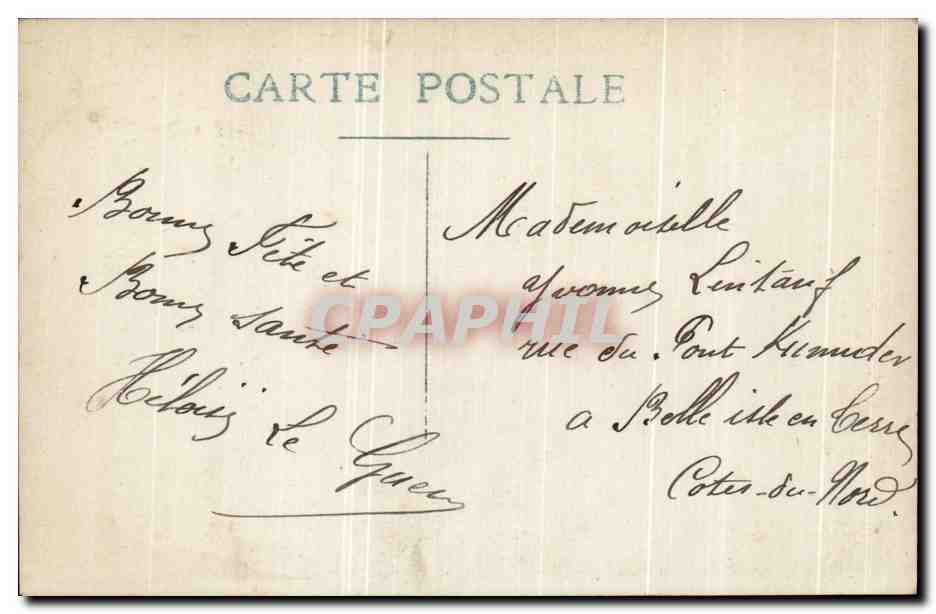 CARTE POSTALE
Bonne Fête et
Bonne santé
Héloïse Le Guen
Mademoiselle
Yvonne Lintanf
rue du Pont
a Belle isle en Terre
Cotes-du-Nord.
CPAPHIL